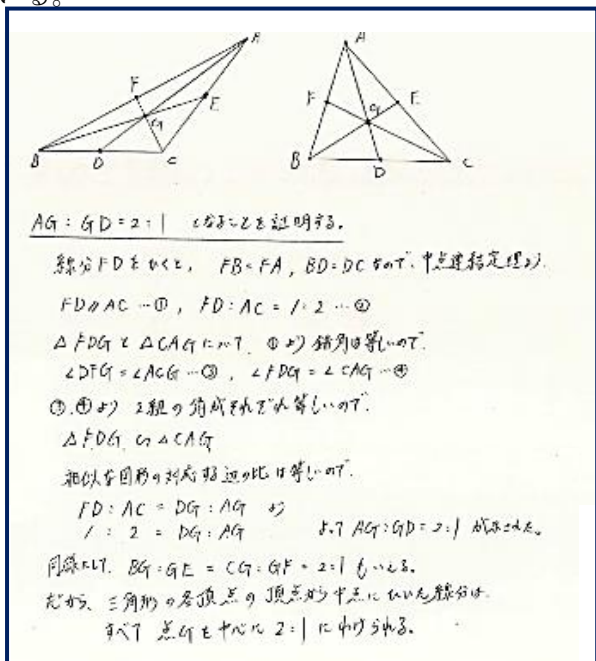 る。
A
F
E
G
B
D
C
A
F
E
G
B
D
C
AG:GD=2:1 となることを証明する。
線分FDをひくと、FB=FA, BD=DCなので、中点連結定理より
FD∥AC …①, FD:AC=1:2 …②
△FDGと△CAGにおいて、①より錯角は等しいので、
∠DFG=∠ACG …③, ∠FDG=∠CAG …④
③,④より 2組の角がそれぞれ等しいので、
△FDG∽△CAG
相似な図形の対応する辺の比は等しいので、
FD:AC=DG:AG より
1:2=DG:AG よって AG:GD=2:1 が示された。
同様にして、BG:GE=CG:GF=2:1もいえる。
だから、三角形の各頂点の頂点から中点にひいた線分は、
すべて 点Gを中心に 2:1 にわけられる。